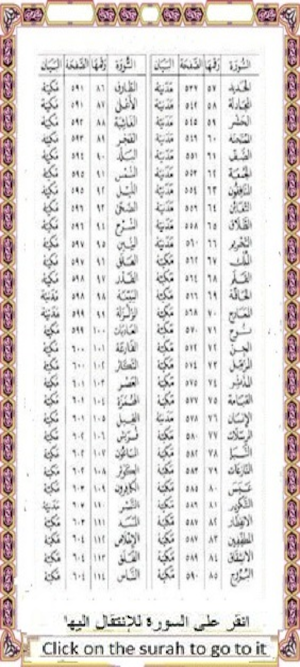 السورة رقمها الصفحة البيان السورة رقمها الصفحة البيان
الحديد ٥٧ ٥٣٧ مدنية الطارق ٨٦ ٥٩١ مكية
المجادلة ٥٨ ٥٤٢ مدنية الأعلى ٨٧ ٥٩١ مكية
الحشر ٥٩ ٥٤٥ مدنية الغاشية ٨٨ ٥٩٢ مكية
الممتحنة ٦٠ ٥٤٩ مدنية الفجر ٨٩ ٥٩٣ مكية
الصف ٦١ ٥٥١ مدنية البلد ٩٠ ٥٩٤ مكية
الجمعة ٦٢ ٥٥٣ مدنية الشمس ٩١ ٥٩٥ مكية
المنافقون ٦٣ ٥٥٤ مدنية الليل ٩٢ ٥٩٥ مكية
التغابن ٦٤ ٥٥٦ مدنية الضحى ٩٣ ٥٩٦ مكية
الطلاق ٦٥ ٥٥٨ مدنية الشرح ٩٤ ٥٩٦ مكية
التحريم ٦٦ ٥٦٠ مدنية التين ٩٥ ٥٩٧ مكية
الملك ٦٧ ٥٦٢ مكية العلق ٩٦ ٥٩٧ مكية
القلم ٦٨ ٥٦٤ مكية القدر ٩٧ ٥٩٨ مكية
الحاقة ٦٩ ٥٦٦ مكية البينة ٩٨ ٥٩٨ مدنية
المعارج ٧٠ ٥٦٨ مكية الزلزلة ٩٩ ٥٩٩ مدنية
نوح ٧١ ٥٧٠ مكية العاديات ١٠٠ ٥٩٩ مكية
الجن ٧٢ ٥٧٢ مكية القارعة ١٠١ ٦٠٠ مكية
المزمل ٧٣ ٥٧٤ مكية التكاثر ١٠٢ ٦٠٠ مكية
المدثر ٧٤ ٥٧٥ مكية العصر ١٠٣ ٦٠١ مكية
القيامة ٧٥ ٥٧٧ مكية الهمزة ١٠٤ ٦٠١ مكية
الإنسان ٧٦ ٥٧٨ مدنية الفيل ١٠٥ ٦٠١ مكية
المرسلات ٧٧ ٥٨٠ مكية قريش ١٠٦ ٦٠٢ مكية
النبأ ٧٨ ٥٨٢ مكية الماعون ١٠٧ ٦٠٢ مكية
النازعات ٧٩ ٥٨٣ مكية الكوثر ١٠٨ ٦٠٢ مكية
عبس ٨٠ ٥٨٥ مكية الكافرون ١٠٩ ٦٠٣ مكية
التكوير ٨١ ٥٨٦ مكية النصر ١١٠ ٦٠٣ مدنية
الانفطار ٨٢ ٥٨٧ مكية المسد ١١١ ٦٠٣ مكية
المطففين ٨٣ ٥٨٧ مكية الإخلاص ١١٢ ٦٠٤ مكية
الانشقاق ٨٤ ٥٨٩ مكية الفلق ١١٣ ٦٠٤ مكية
البروج ٨٥ ٥٩٠ مكية الناس ١١٤ ٦٠٤ مكية
انقر على السورة للإنتقال اليها
Click on the surah to go to it